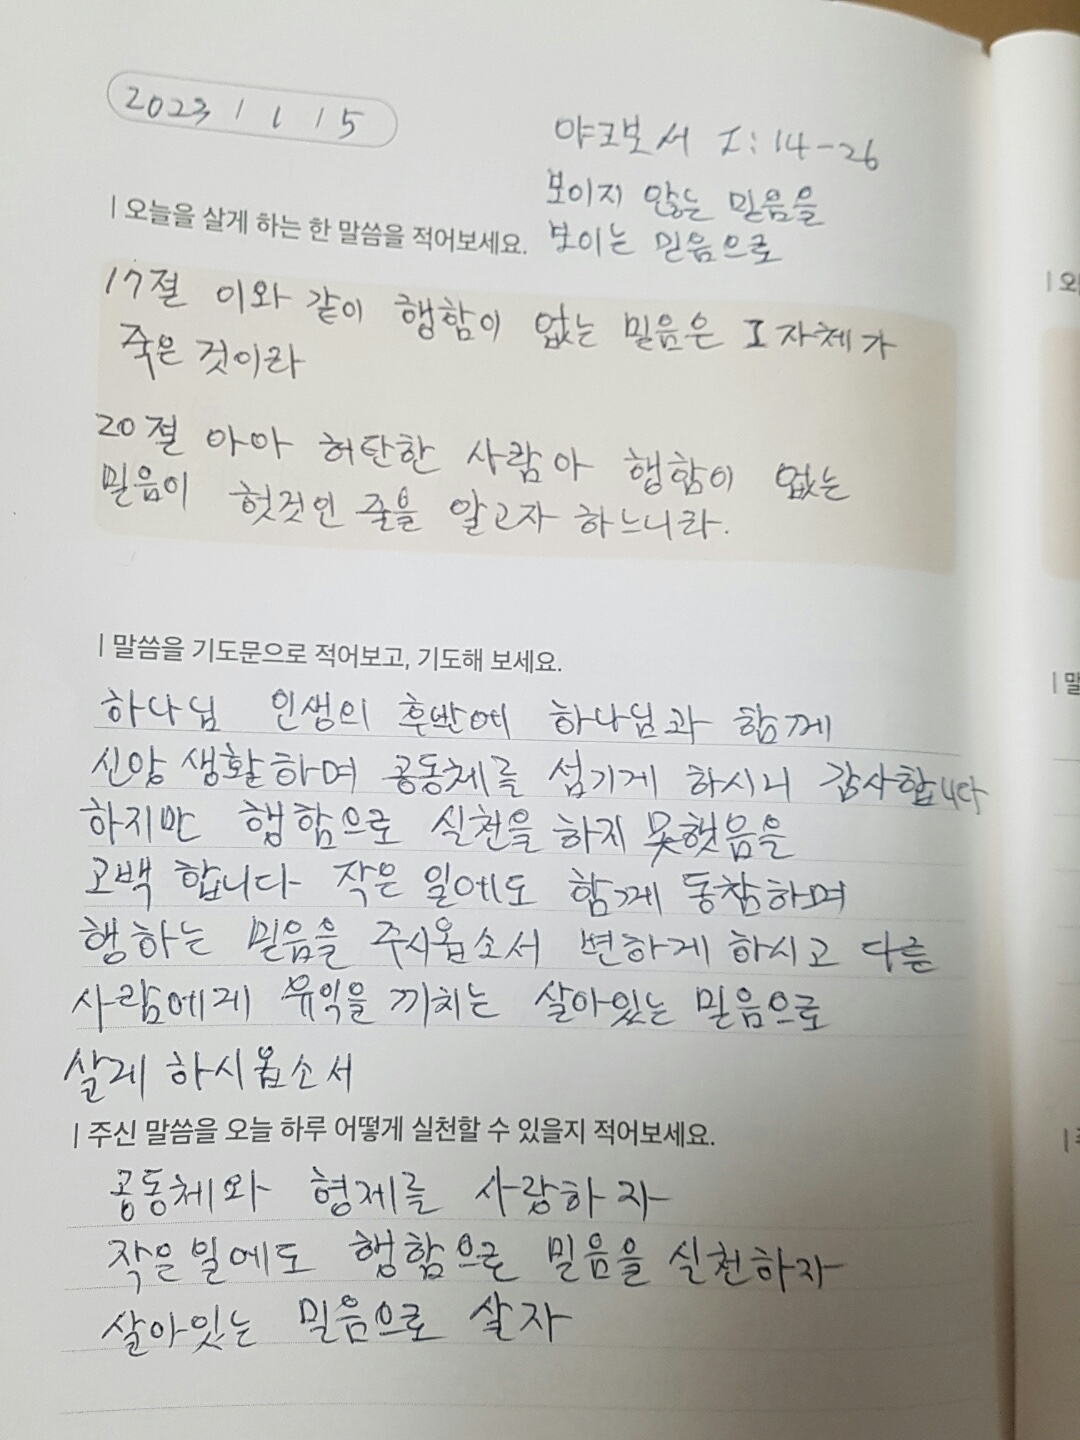 2023 / 1 / 15
야고보서 2:14-26
보이지 않는 믿음을
보이는 믿음으로
| 오늘을 살게 하는 한 말씀을 적어보세요.
17절 이와 같이 행함이 없는 믿음은 그 자체가
죽은 것이라
20절 아아 허탄한 사람아 행함이 없는
믿음이 헛것인 줄을 알고자 하느냐라.
| 말씀을 기도문으로 적어보고, 기도해 보세요.
하나님 인생의 후반에 하나님과 함께
신앙 생활하며 공동체를 섬기게 하시니 감사합니다
하지만 행함으로 실천을 하지 못했음을
고백 합니다 작은 일에도 함께 동참하며
행하는 믿음을 주시옵소서 변하게 하시고 다른
사람에게 유익을 끼치는 살아있는 믿음으로
살게 하시옵소서
| 주신 말씀을 오늘 하루 어떻게 실천할 수 있을지 적어보세요.
공동체와 형제를 사랑하자
작은일에도 행함으로 믿음을 실천하자
살아있는 믿음으로 살자